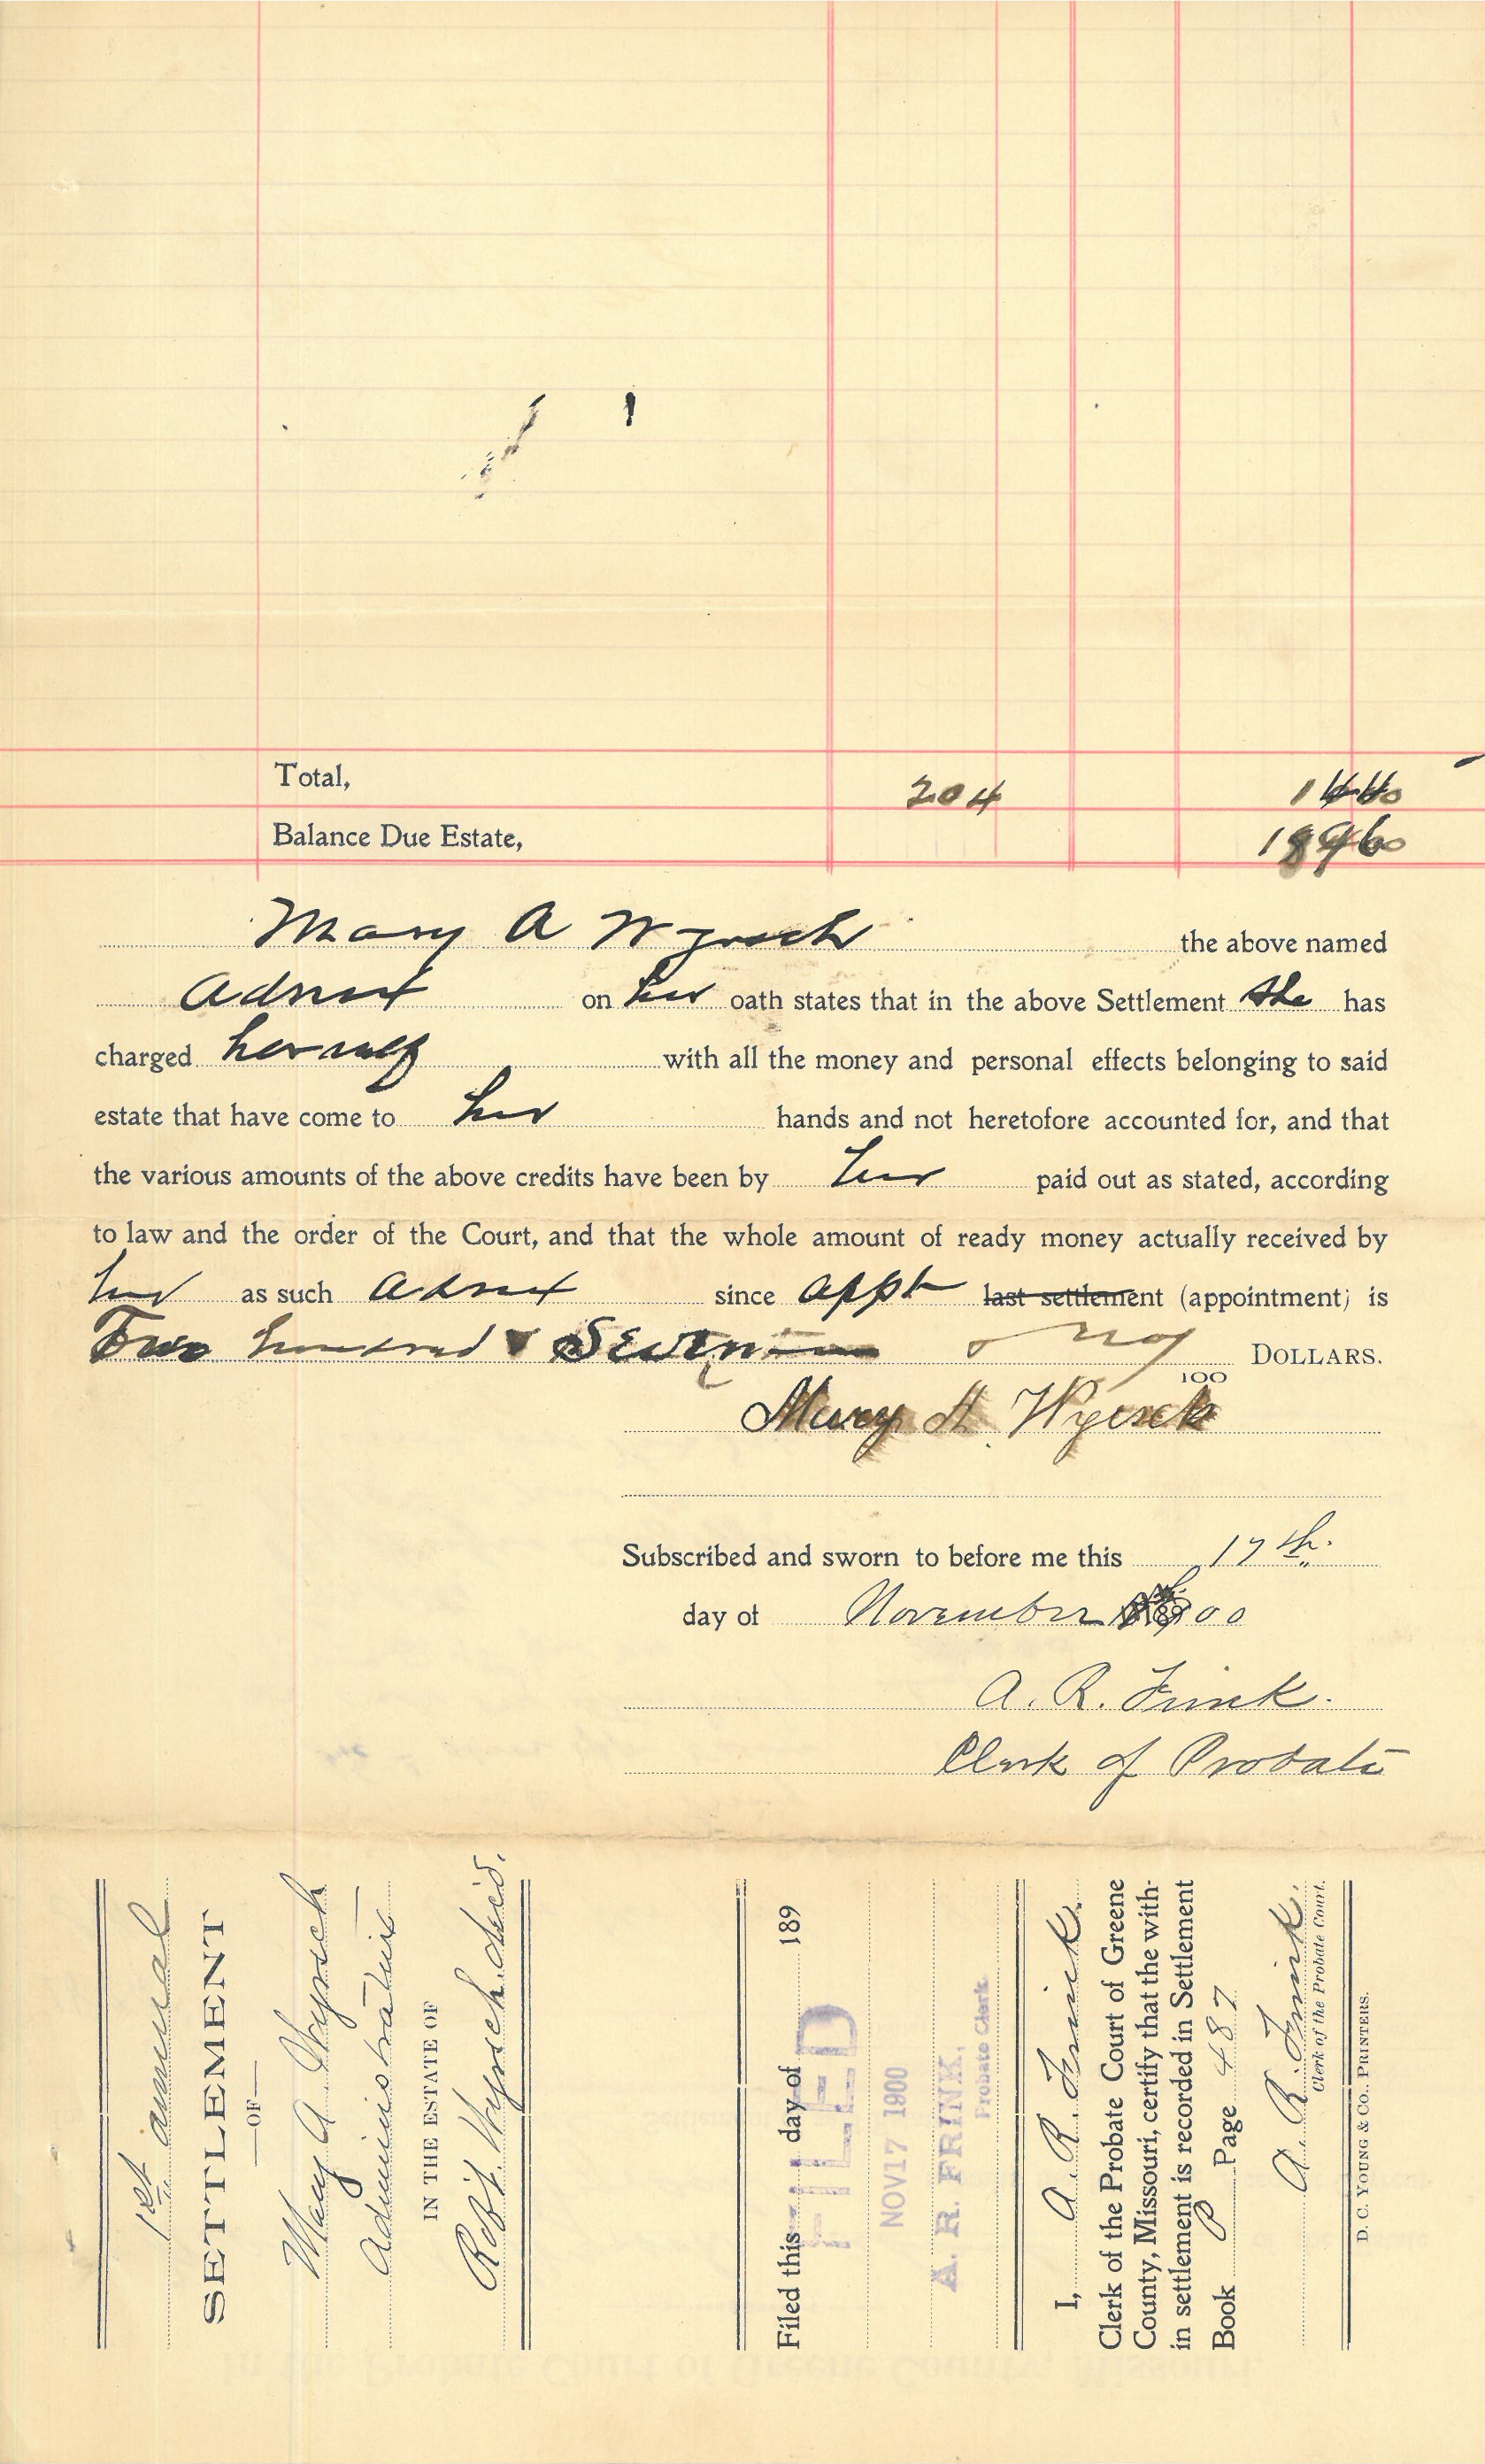 Total, 204
Balance Due Estate,
Mary A Wyrsch the above named
Admx on her oath states that in the above Settlement she has
charged herself with all the money and personal effects belonging to said
estate that have come to her hands and not heretofore accounted for, and that
the various amounts of the above credits have been by her paid out as stated, according
to law and the order of the Court, and that the whole amount of ready money actually received by
her as such Admx since appt last settlement (appointment) is
Two hundred & no/100 DOLLARS.
Mary A. Wyrsch
Subscribed and sworn to before me this 17th.
day of November 1900
A. R. Frink.
Clerk of Probate
1st annual
SETTLEMENT
—OF—
Mary A. Wyrsch
Administratrix
IN THE ESTATE OF
Robt. Wyrsch. decd.
Filed this day of 189
FILED
NOV 17 1900
A. R. FRINK,
Probate Clerk.
I, A. R. Frink.
Clerk of the Probate Court of Greene
County, Missouri, certify that the with-
in settlement is recorded in Settlement
Book P Page 487
A. R. Frink.
Clerk of the Probate Court.
D. C. YOUNG & CO., PRINTERS.